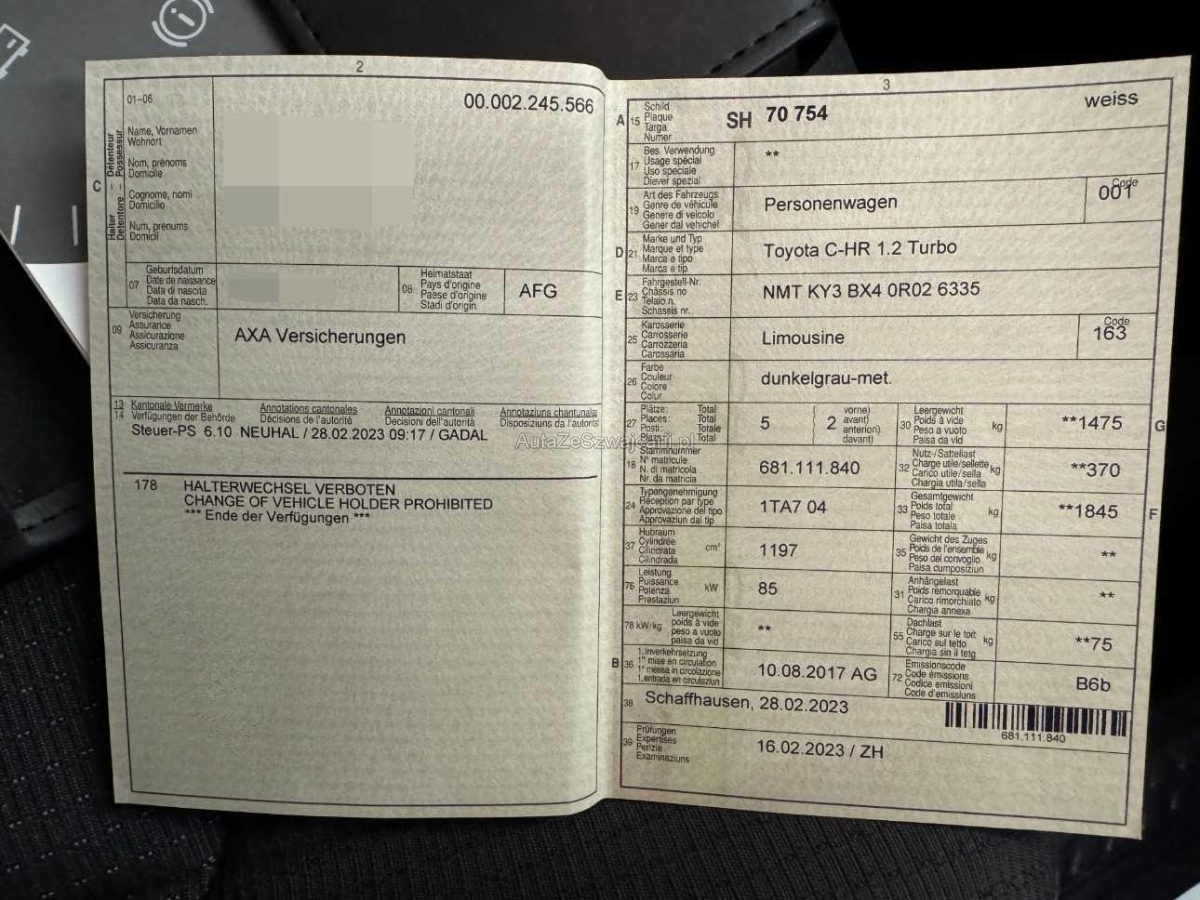 2
01-06
00.002.245.566
C
Détenteur
Possessur
Halter
Detentore
Name, Vornamen
Wohnort
Nom, prénoms
Domicile
Cognome, nomi
Domicilio
Num, prenums
Domicil
07
Geburtsdatum
Date de naissance
Data di nascita
Data da nasch.
08
Heimatstaat
Pays d'origine
Paese d'origine
Stadi d'origin
AFG
09
Versicherung
Assurance
Assicurazione
Assicuranza
AXA Versicherungen
13
14
Kantonale Vermerke
Verfügungen der Behörde
Annotations cantonales
Décisions de l'autorité
Annotazioni cantonali
Decisioni dell'autorità
Annotaziuns chantunalas
Disposiziuns da l'autorità
Steuer-PS 6.10 NEUHAL / 28.02.2023 09:17 / GADAL
AutaZeSzwajcarii.pl
178 HALTERWECHSEL VERBOTEN
CHANGE OF VEHICLE HOLDER PROHIBITED
*** Ende der Verfügungen ***
3
A 15
Schild
Plaque
Targa
Numer
SH 70 754
weiss
17
Bes. Verwendung
Usage spécial
Uso speciale
Diever spezial
**
19
Art des Fahrzeugs
Genre de véhicule
Genere di veicolo
Gener dal vehichel
Personenwagen
Code
001
D 21
Marke und Typ
Marque et type
Marca e tipo
Marca e tip
Toyota C-HR 1.2 Turbo
E 23
Fahrgestell-Nr.
Châssis no
Telaio n.
Schassis nr.
NMT KY3 BX4 0R02 6335
25
Karosserie
Carrosserie
Carrozzeria
Carossaria
Limousine
Code
163
26
Farbe
Couleur
Colore
Colur
dunkelgrau-met.
27
Plätze: Total
Places: Total
Posti: Totale
Plazs: Total
5
2
vorne)
avant)
anteriori)
davant)
30
Leergewicht
Poids à vide
Peso a vuoto
Paisa da vid
kg
**1475
G
18
Stammnummer
N° matricule
N. di matricola
Nr. da matricla
681.111.840
32
Nutz-/Sattellast
Charge utile/sellette
Carico utile/sella
Chargia utila/sella
kg
**370
24
Typengenehmigung
Réception par type
Approvazione del tipo
Approvaziun dal tip
1TA7 04
33
Gesamtgewicht
Poids total
Peso totale
Paisa totala
kg
**1845
F
37
Hubraum
Cylindrée
Cilindrata
Cilindrada
cm³
1197
35
Gewicht des Zuges
Poids de l'ensemble
Peso del convoglio
Paisa cumposiziun
kg
**
76
Leistung
Puissance
Potenza
Prestaziun
kW
85
31
Anhängelast
Poids remorquable
Carico rimorchiato
Chargia annexa
kg
**
78 kW/kg
Leergewicht
poids à vide
peso a vuoto
paisa da vid
**
55
Dachlast
Charge sur le toit
Carico sul tetto
Chargia sin il tetg
kg
**75
B 36
1. Inverkehrsetzung
1re mise en circulation
1a messa in circolazione
1. entrada en circulaziun
10.08.2017 AG
72
Emissionscode
Code émissions
Codice emissioni
Code d'emissiuns
B6b
38
Schaffhausen, 28.02.2023
681.111.840
39
Prüfungen
Expertises
Perizie
Examinaziuns
16.02.2023 / ZH